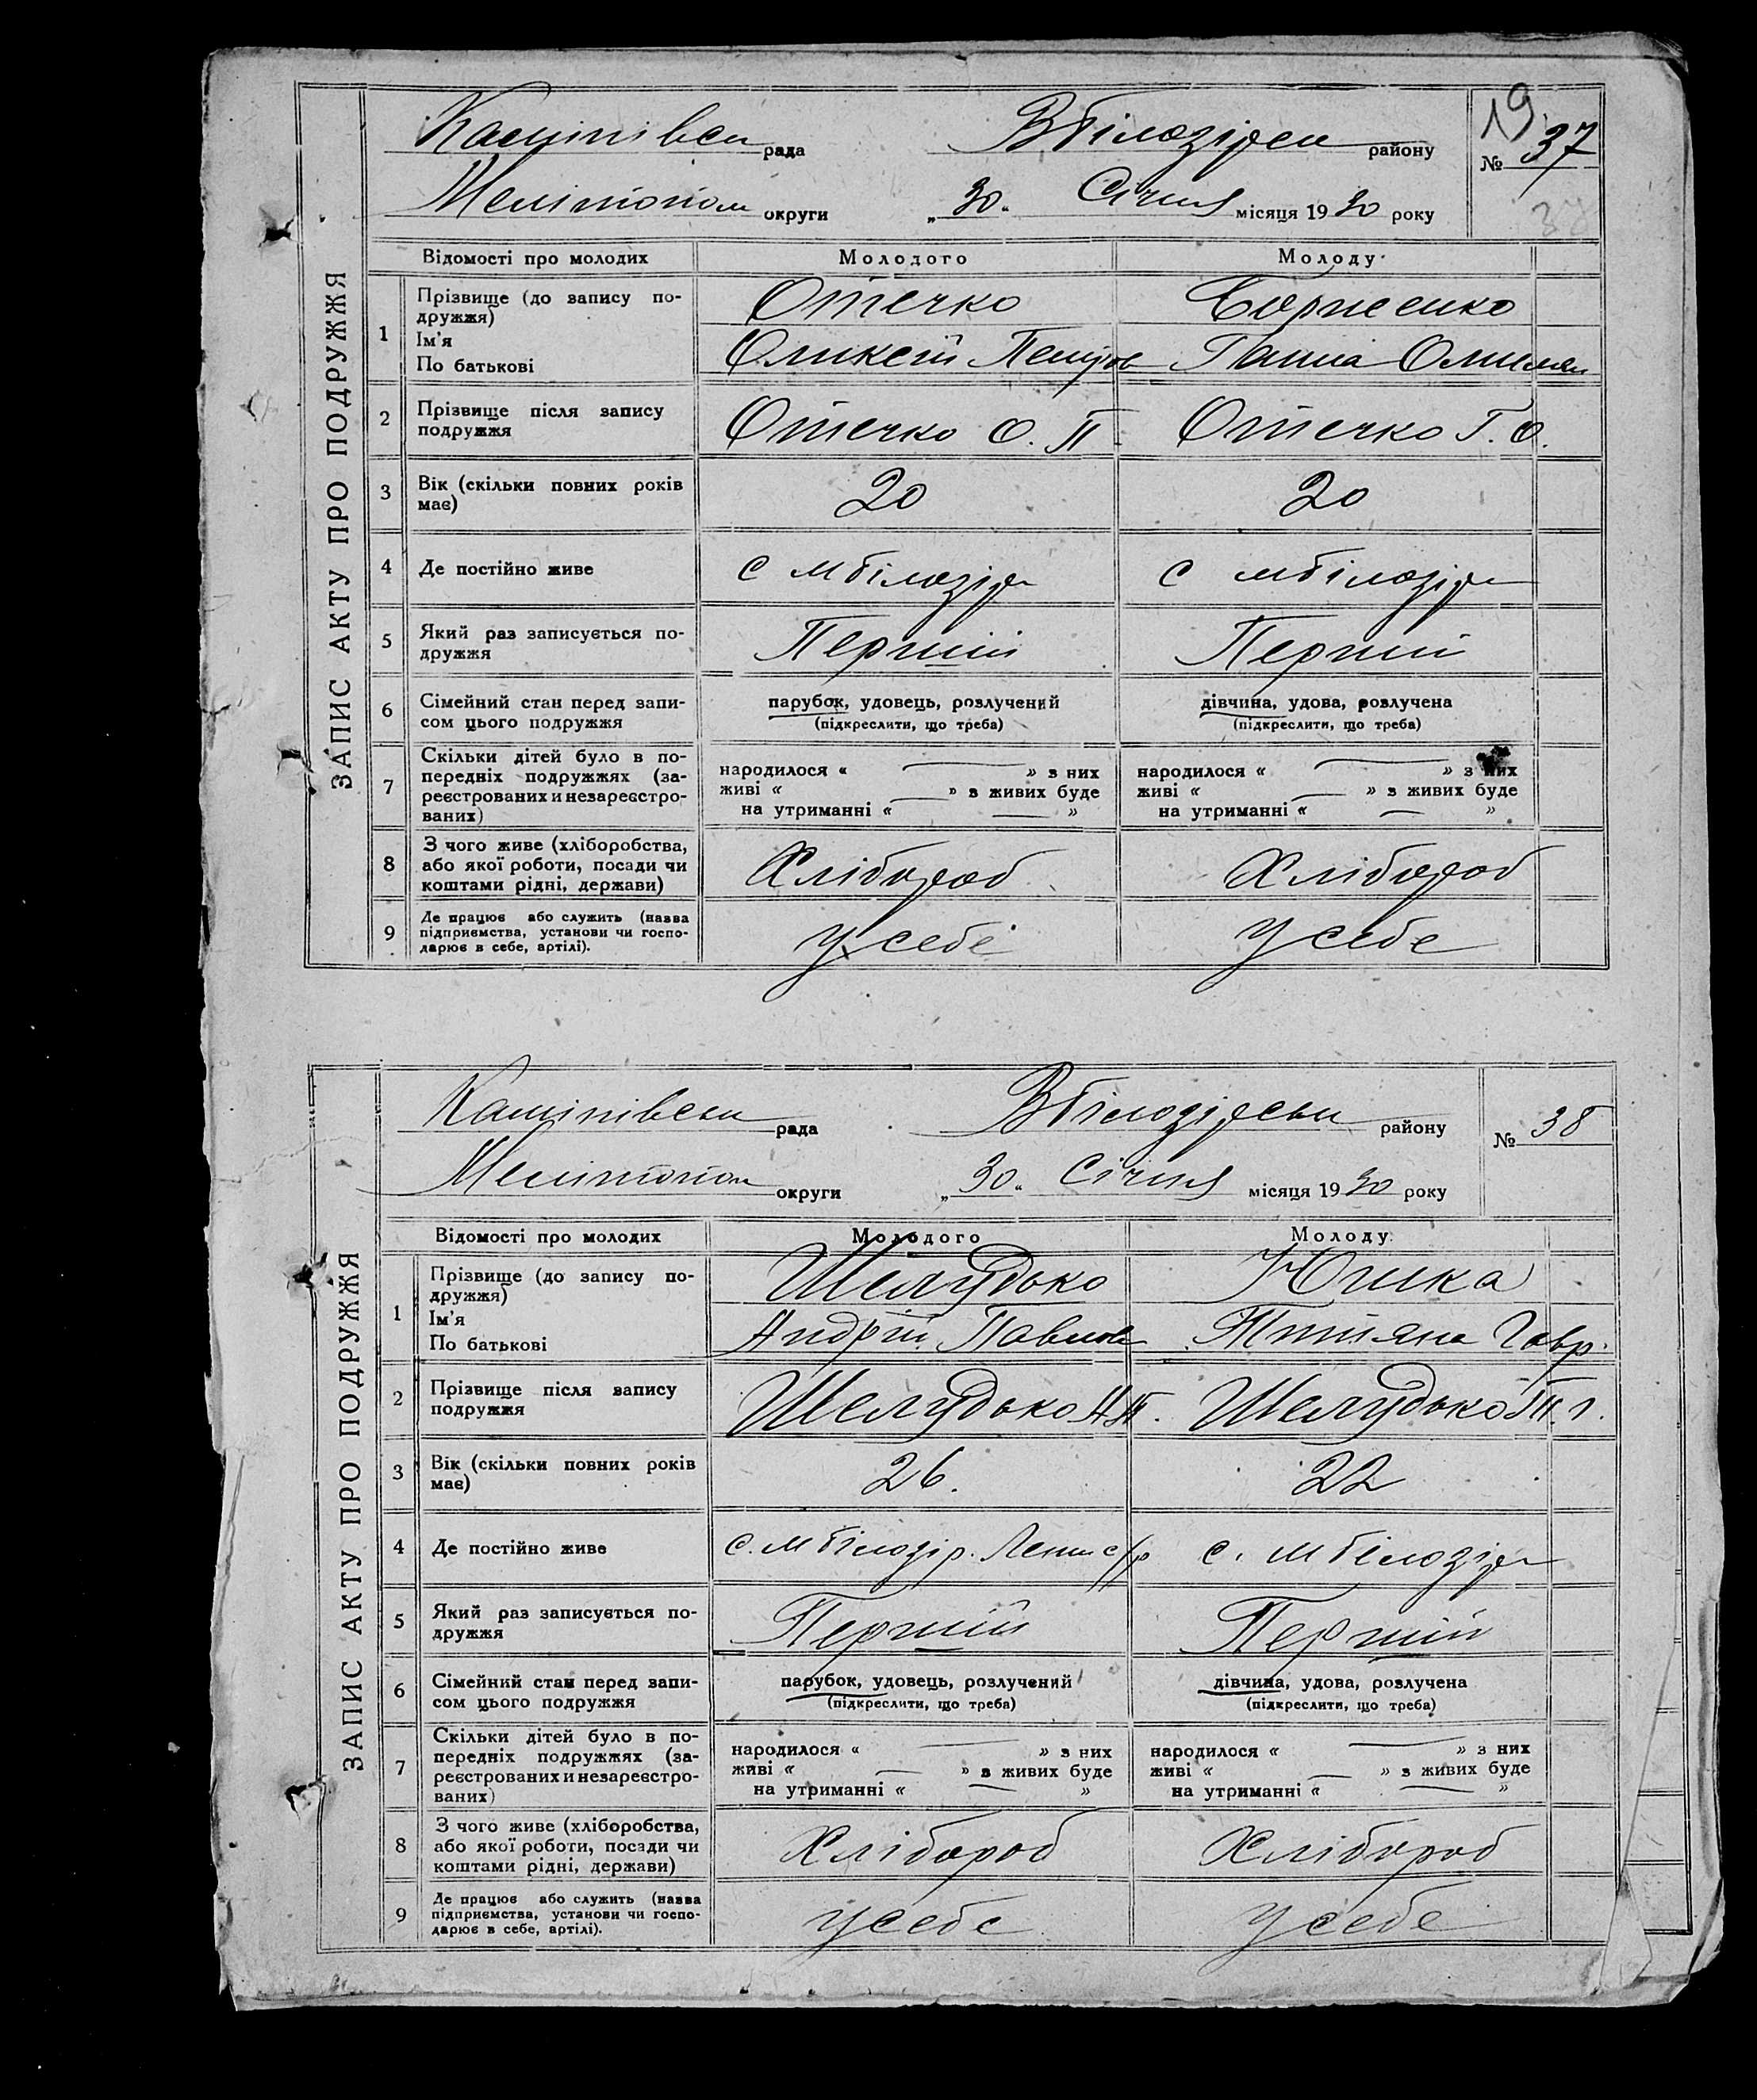 ЗАПИС АКТУ ПРО ПОДРУЖЖЯ
рада
Вбілозірськ району
19
№ 37
Мелітопол округи
„30" Січня місяця 1930 року
Відомості про молодих
Молодого
Молоду
1
Прізвище (до запису по-
дружжя)
Отечко
Борисенко
Ім'я
По батькові
Олікей Петров
Ганна
2
Прізвище після запису
подружжя
Отечко О. П.
Отечко Г. О.
3
Вік (скільки повних років
має)
20
20
4
Де постійно живе
с мбілозір
с мбілозір
5
Який раз записується по-
дружжя
Перший
Перший
6
Сімейний стан перед запи-
сом цього подружжя
парубок, удовець, розлучений
(підкреслити, що треба)
дівчина, удова, розлучена
(підкреслити, що треба)
7
Скільки дітей було в по-
передніх подружжях (за-
реєстрованих и незареєстро-
ваних)
народилося « — » з них
живі « — » з живих буде
на утриманні « — »
народилося « — » з них
живі « — » з живих буде
на утриманні « — »
8
З чого живе (хліборобства,
або якої роботи, посади чи
коштами рідні, держави)
Хлібороб
Хлібороб
9
Де працює або служить (назва
підприємства, установи чи госпо-
дарює в себе, артілі).
у себе
у себе
ЗАПИС АКТУ ПРО ПОДРУЖЖЯ
рада
Вбілозірськ району
№ 38
Мелітопол округи
„30" Січня місяця 1930 року
Відомості про молодих
Молодого
Молоду
1
Прізвище (до запису по-
дружжя)
Шелудько
Юшка
Ім'я
По батькові
Андрій Павлов
Тетяна Гавр.
2
Прізвище після запису
подружжя
Шелудько А.П.
Шелудько Т. Г.
3
Вік (скільки повних років
має)
26.
22
4
Де постійно живе
с. мбілозір. Ленін с/р
с. мбілозір
5
Який раз записується по-
дружжя
Перший
Перший
6
Сімейний стан перед запи-
сом цього подружжя
парубок, удовець, розлучений
(підкреслити, що треба)
дівчина, удова, розлучена
(підкреслити, що треба)
7
Скільки дітей було в по-
передніх подружжях (за-
реєстрованих и незареєстро-
ваних)
народилося « — » з них
живі « — » з живих буде
на утриманні « — »
народилося « — » з них
живі « — » з живих буде
на утриманні « — »
8
З чого живе (хліборобства,
або якої роботи, посади чи
коштами рідні, держави)
Хлібороб
Хлібороб
9
Де працює або служить (назва
підприємства, установи чи госпо-
дарює в себе, артілі).
у себе
у себе